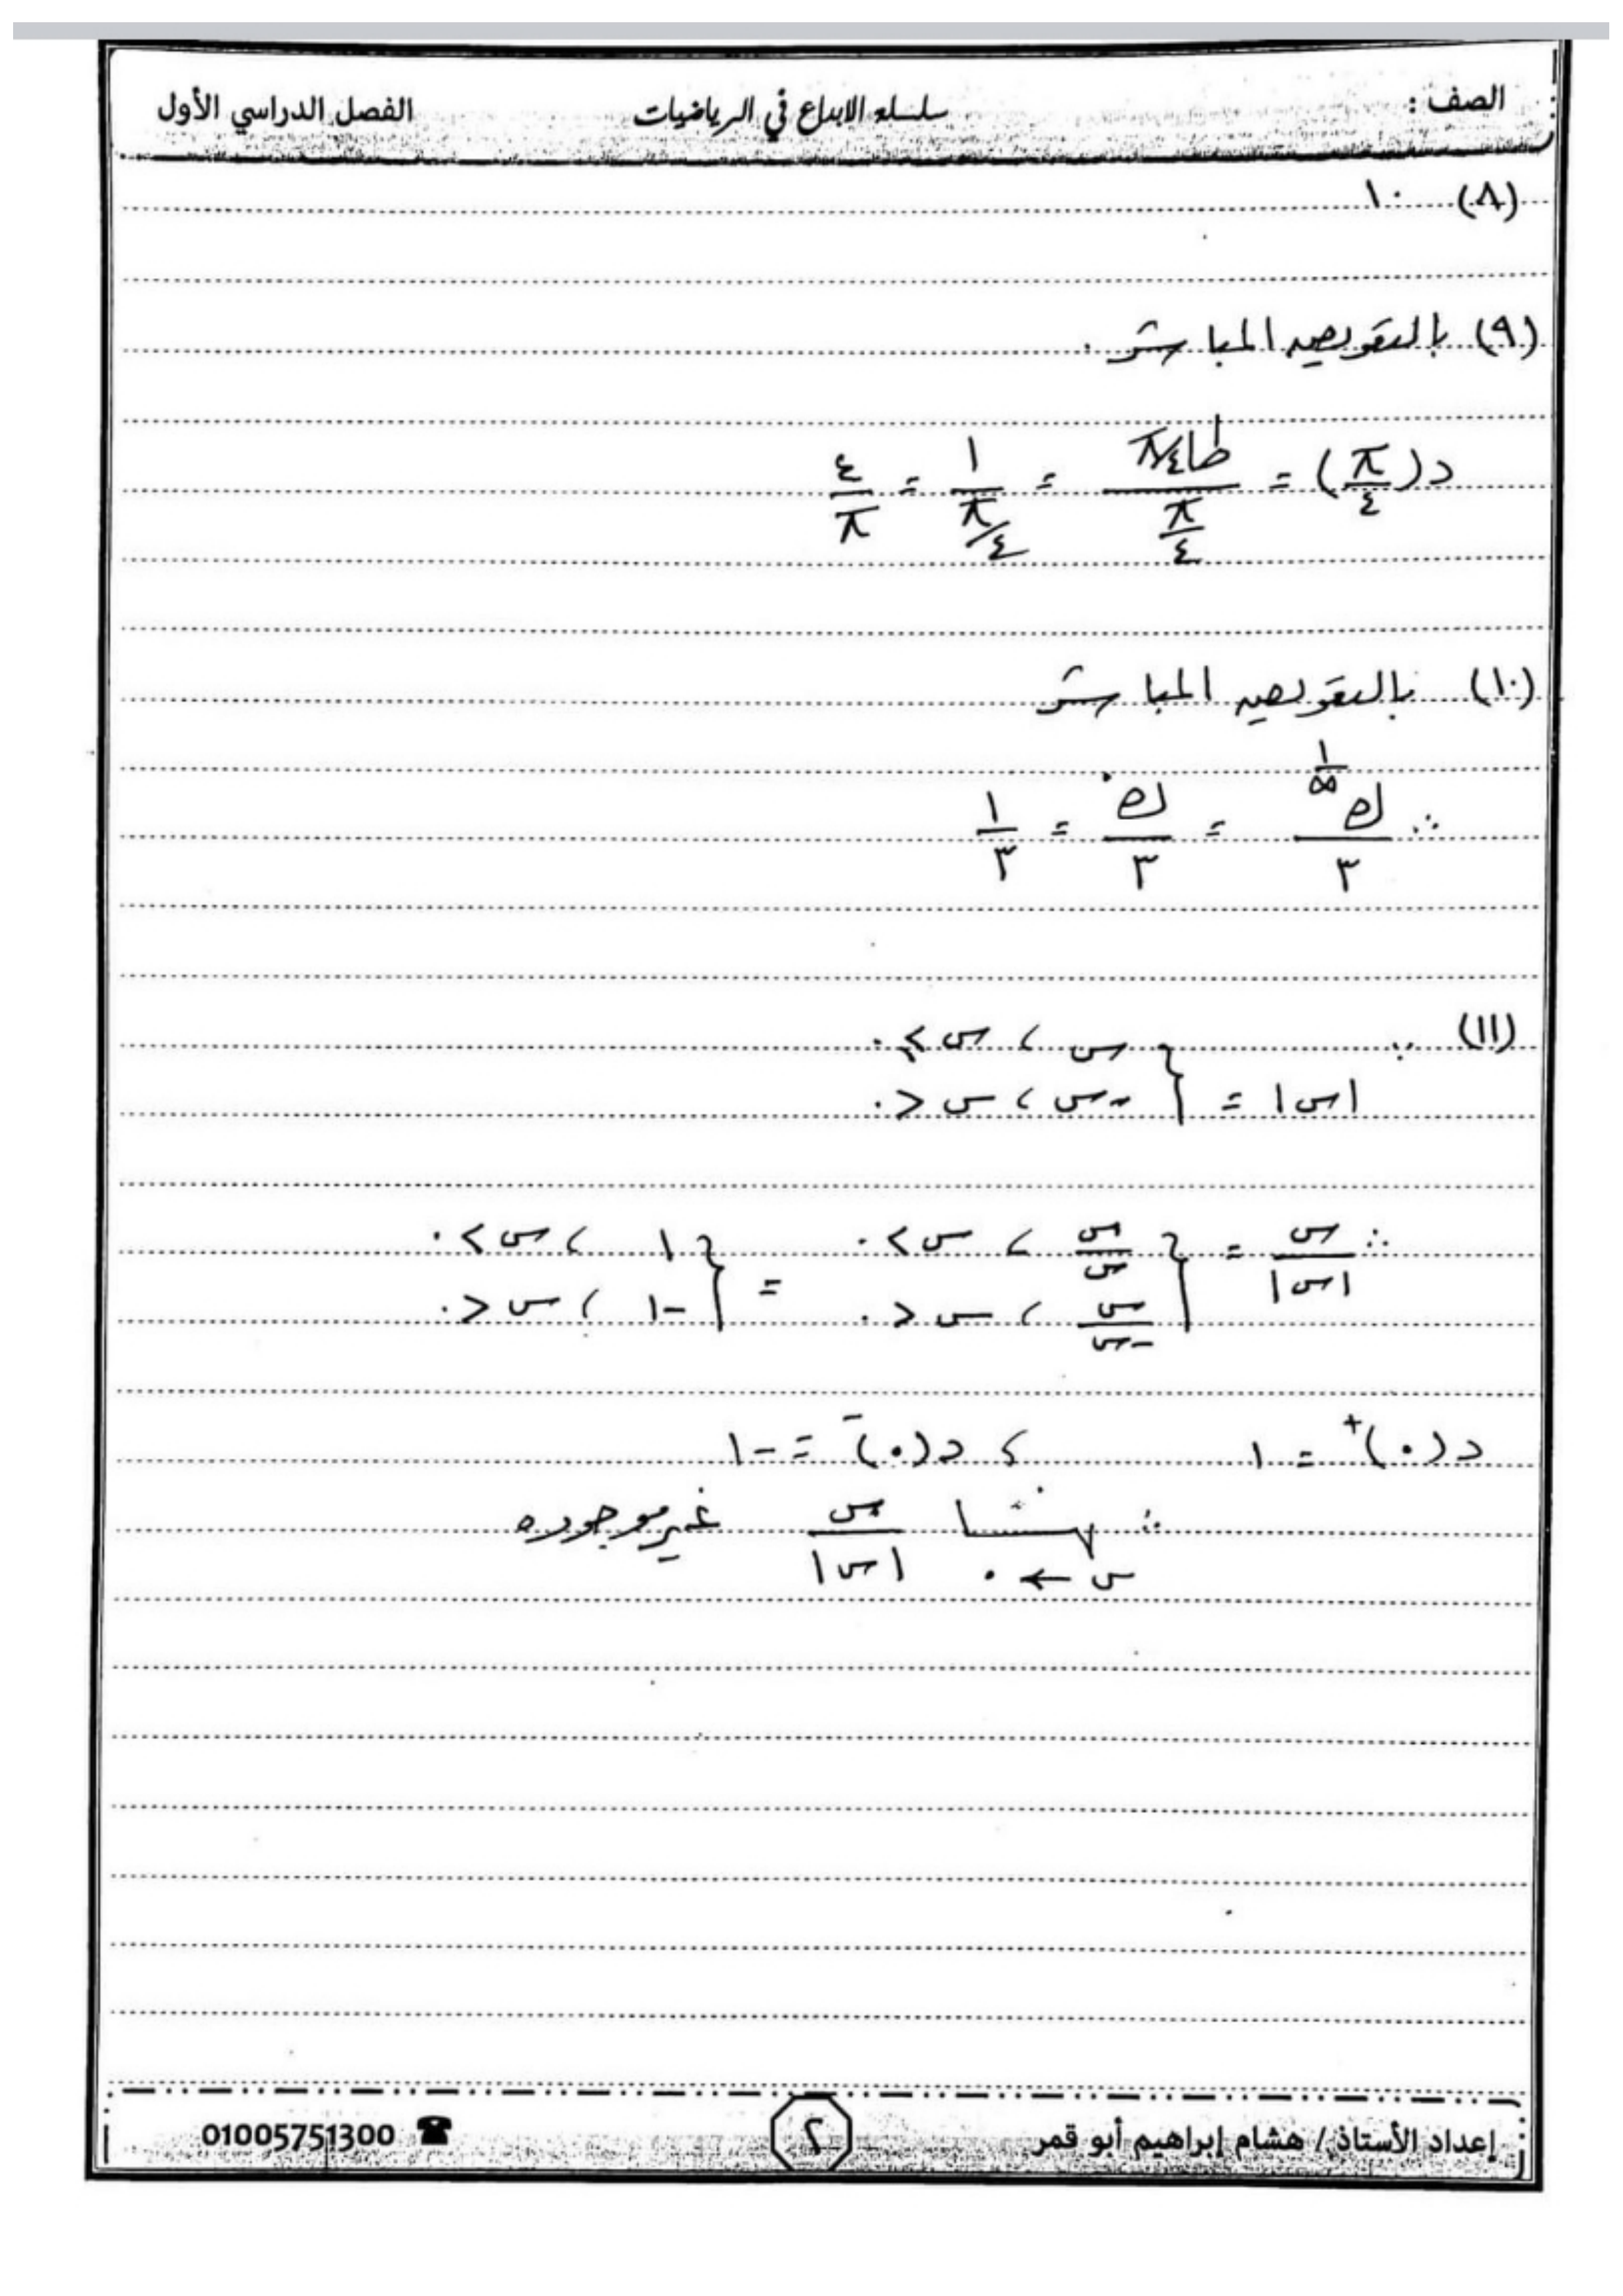 الصف :
سلسله الابداع في الرياضيات
الفصل الدراسي الأول
(٨) ١٠
(٩) بالتعويض المباشر .
د(π/٤) = طا π/٤ / (π/٤) = ١ / (π/٤) = ٤/π
(١٠) بالتعويض المباشر
∴ هـ^(١/∞) / ٣ = هـ^٠ / ٣ = ١/٣
(١١) ∵
|س| = { س ، س > ٠
-س ، س < ٠
∴ س/|س| = { س/س ، س > ٠ = { ١ ، س > ٠
س/-س ، س < ٠ -١ ، س < ٠
د(٠)+ = ١ ، د(٠)- = -١
∴ نهــا س/|س| غير موجوده
س ← ٠
إعداد الأستاذ / هشام إبراهيم أبو قمر
٢
☎ 01005751300